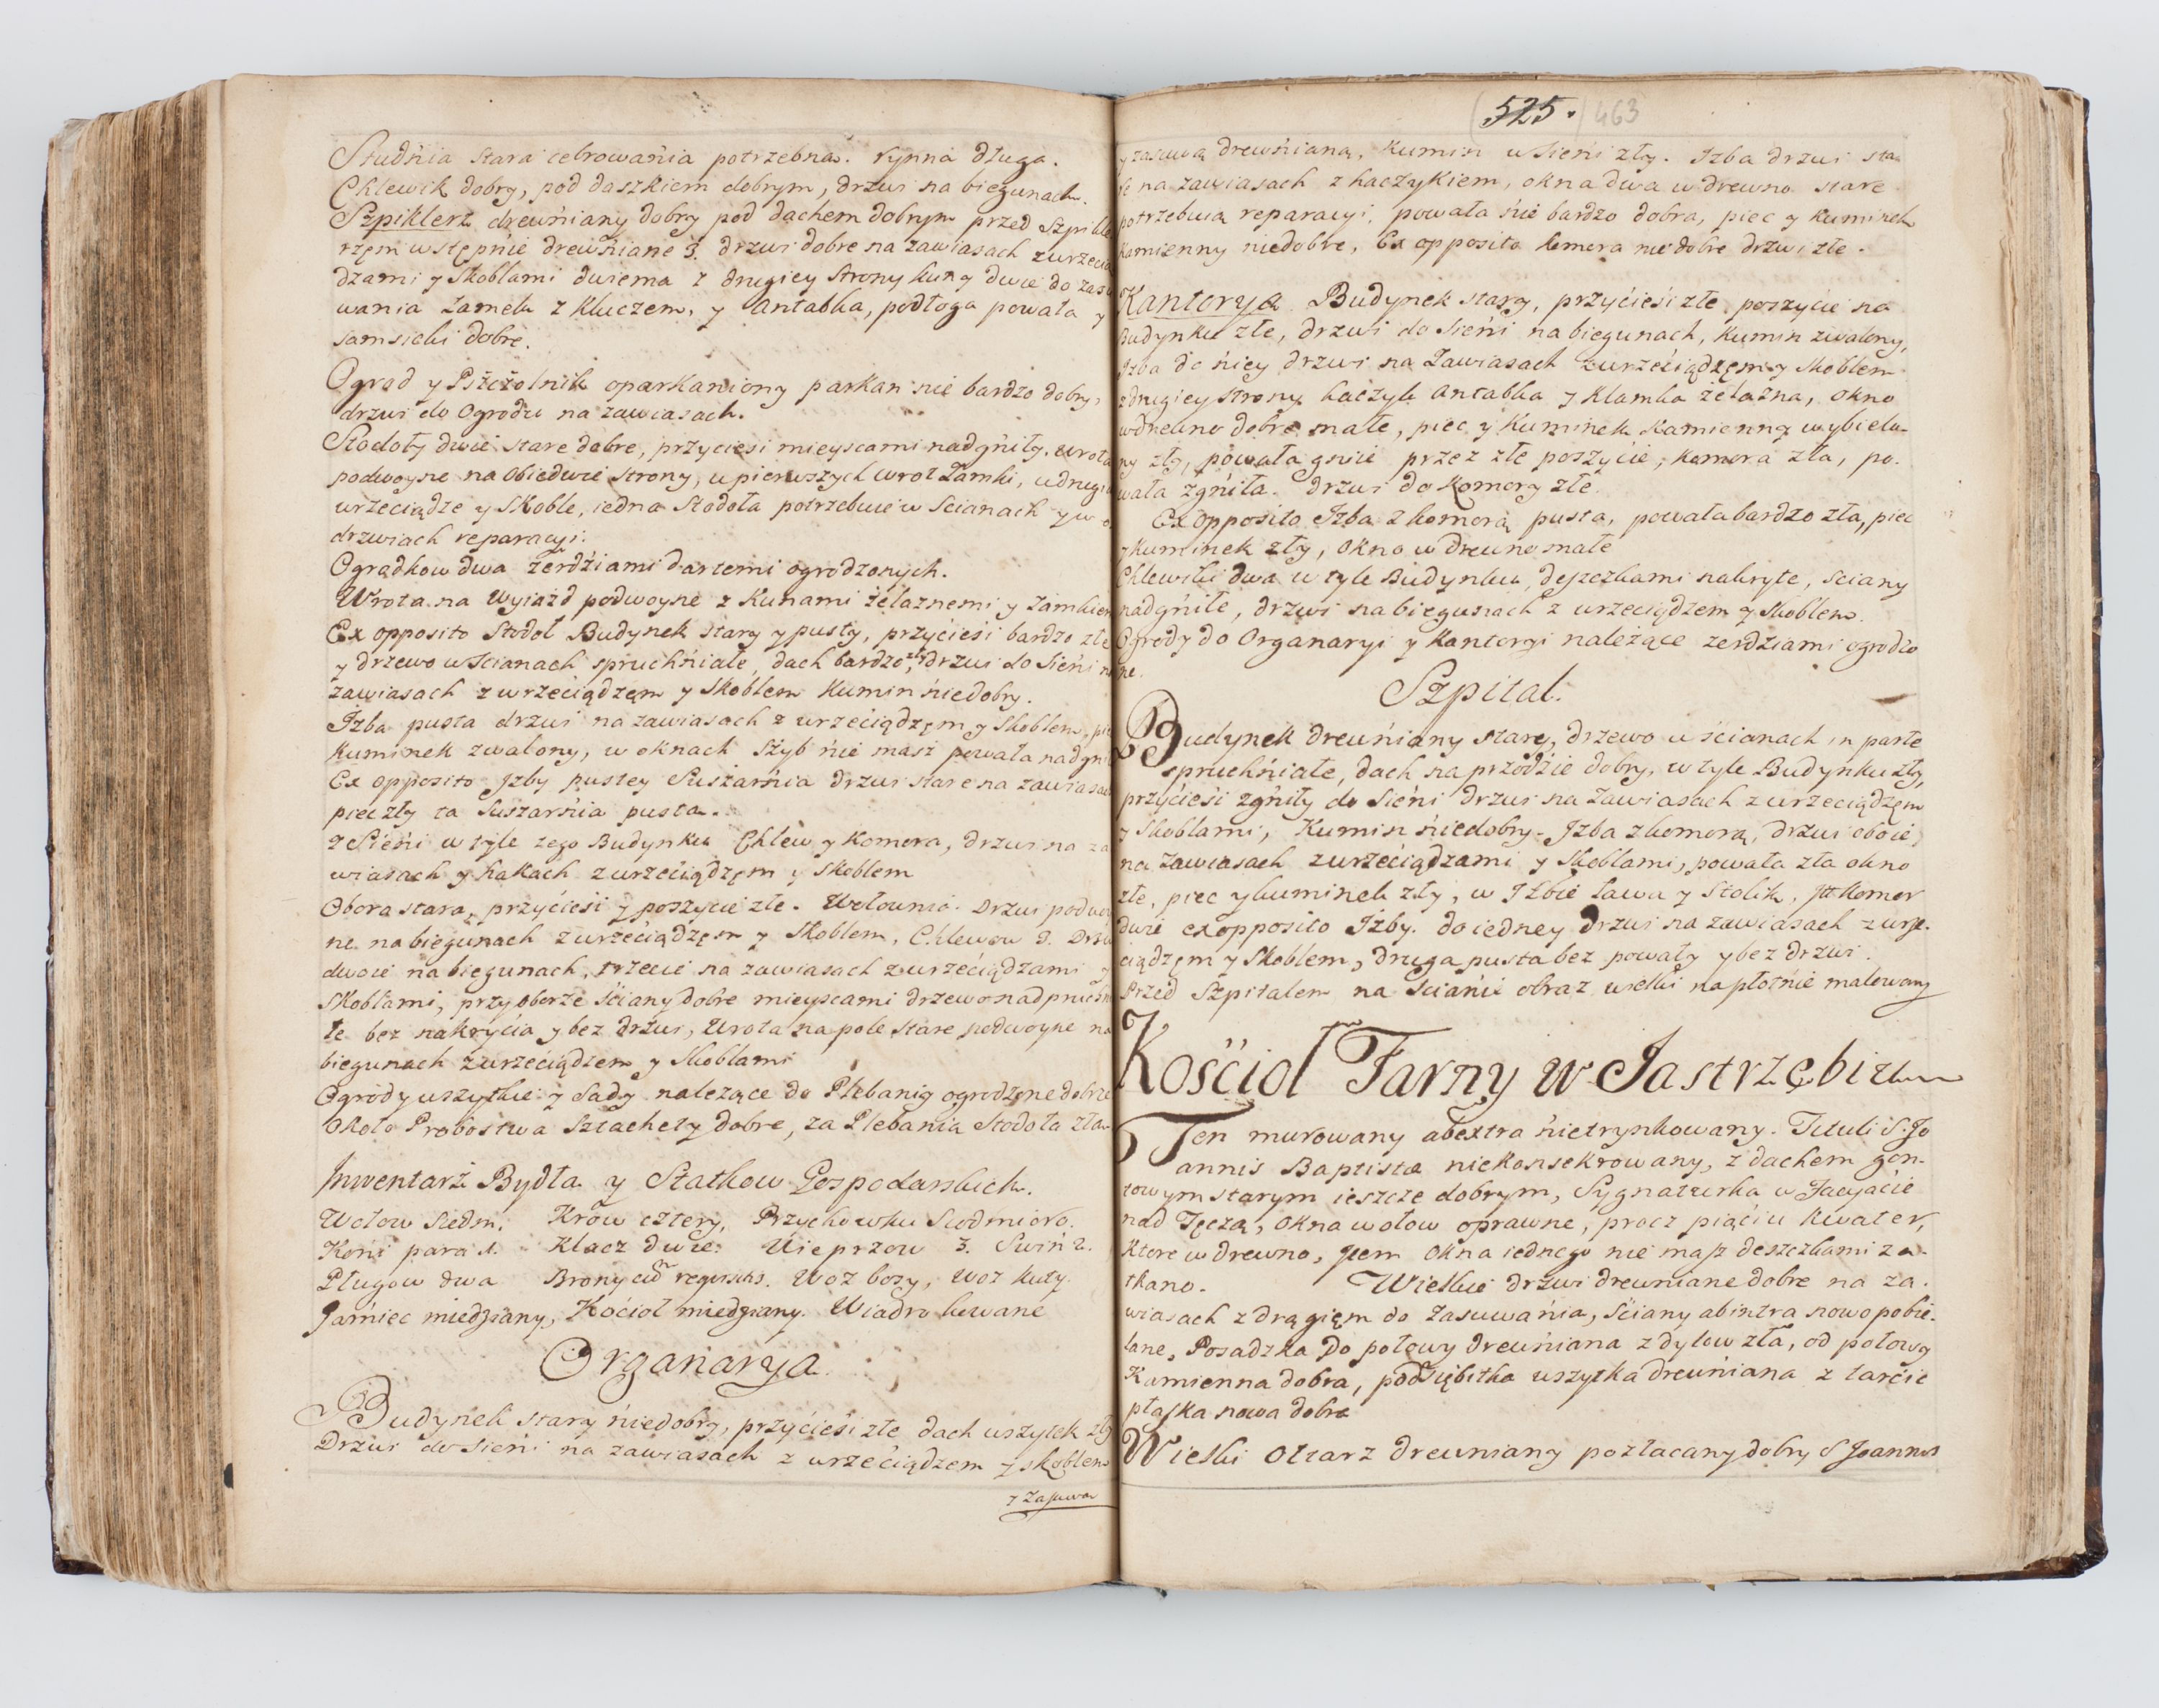 Studnia stara cebrowania potrzebna. Rynna długa.
Chlewik dobry, pod daszkiem dobrym, drzwi na biegunach.
Szpiklerz drewniany dobry pod dachem dobrym przed Szpikle
rzęm wstępnie drewniane 3. drzwi dobre na zawiasach z wrzecią
dzami y Skoblami dwiema z drugiey Strony kuny dwie do zasu
wania Zamek z Kluczem, y Antabka, podłoga powała y
samsieki dobre.
Ogrod y Pszczolnik oparkaniony parkan nie bardzo dobry,
drzwi do Ogrodu na zawiasach.
Stodoły dwie stare dobre, przyciesi mieyscami nadgniły. wrota
podwoyne na obiedwie strony, u pierwszych wrot Zamki, u drugi
wrzeciądze y Skoble, iedna Stodoła potrzebuie w Scianach y w
drzwiach reparacyi.
Ogradkow dwa żerdziami dartemi ogrodzonych.
Wrota na Wyiazd podwoyne z Kunami żelaznemi y Zamkiem
Ex opposito Stodoł Budynek stary y pusty, przyciesi bardzo złe
y drzewo w Scianach spruchniałe, dach bardzo zły drzwi do Sieni na
zawiasach z wrzeciądzęm y Skoblem Kumin niedobry.
Izba pusta drzwi na zawiasach z wrzeciądzęm y Skoblem, pie
Kuminek zwalony, w oknach Szyb nie masz powała nadgni
Ex opposito Izby pustey Suszarnia drzwi stare na zawiasach
piec zły ta Suszarnia pusta.
z Sieni w tyle tego Budynku Chlew y Komora, drzwi na za
wiasach y hakach z wrzeciądzęm y Skoblem
Obora stara, przyciesi y poszycie złe. Wołownia. Drzwi podwoy
ne na biegunach z wrzeciądzęm y Skoblem, Chlewow 3. Drzwi
dwoie na biegunach, trzecie na zawiasach z wrzeciądzami y
Skoblami, przy oborze Sciany dobre mieyscami drzewo nadpruchnia
łe bez nakrycia y bez drzwi, Wrota na pole stare podwoyne na
biegunach z wrzeciądzem y Skoblami
Ogrody wszytkie y Sady nalezące do Plebanij ogrodzone dobrze
Około Probostwa Sztachety dobre, za Plebania Stodoła zła
Inwentarz Bydła y Statkow Gospodarskich.
Wołow Siedm, Krow cztery, Przychowku Siodmioro.
Koni para 1. Klacz dwie. Wieprzow 3. Swiń 2.
Pługow dwa Brony cum requisitis. Woz bosy, woz kuty.
Garniec miedziany, Kocioł miedziany. Wiadro kowane
Organarya.
Budynek stary niedobry, przyciesi złe dach wszytek zły
Drzwi do Sieni na zawiasach z wrzeciądzem y skoblem
y Zasuwą
525. 463
y zasuwą drewnianą, Kumin w Sieni zły. Izba drzwi sta
łe na zawiasach z haczykiem, okna dwa w drewno stare
potrzebuią reparacyi, powała nie bardzo dobra, piec y Kuminek
kamienny niedobre, Ex opposito komora niedobre drzwi złe.
Kantorya Budynek stary, przyciesi złe, poszycie na
Budynku złe, drzwi do Sieni na biegunach, Kumin zwalony,
Izba do niey drzwi na Zawiasach z wrzeciądzęm y Skoblem
z drugiey strony haczyk Antabka y Klamka żelazna, okno
w drewno dobre małe, piec y Kuminek kamienny wybiela-
ny zły, powała gnie przez złe poszycie, komora zła, po-
wała zgniła. Drzwi do Komory złe.
Ex opposito Izba z komorą pusta, powała bardzo zła, piec
y kuminek zły, okno w drewno małe
Chlewiki dwa w tyle Budynku, deszczkami nakryte, sciany
nadgniłe, drzwi na biegunach z wrzeciądzem y Skoblem.
Ogrody do Organaryi y Kantoryi należące żerdziami ogrodzo
ne.
Szpital.
Budynek drewniany stary, drzewo w ścianach in parte
spruchniałe, dach na przodzie dobry, w tyle Budynku zły,
przyciesi zgniły do Sieni drzwi na Zawiasach z wrzeciądzęm
y Skoblami, Kumin niedobry. Izba z komorą, drzwi oboie
na Zawiasach z wrzeciądzami y Skoblami, powała zła okno
złe, piec y kuminek zły, w Izbie Ława y Stolik, Itt Komor
dwie ex opposito Izby. do iedney drzwi na zawiasach z wrze-
ciądzęm y Skoblem, druga pusta bez powały y bez drzwi.
Przed Szpitalem na Scianie obraz wielki na płotnie malowany
Kościoł Farny w Jastrzębiu
Ten murowany abextra nietynkowany. Tituli S. Jo
annis Baptistæ niekonsekrowany, z dachem gon-
towym starym ieszcze dobrym, Sygnaturka w Facyacie
nad Tęczą, okna w ołow oprawne, procz piąciu kwater,
ktore w drewno, item okna iednego nie masz deszczkami za-
tkano. Wielkie drzwi drewniane dobre na za-
wiasach z drągięm do Zasuwania, Sciany abintra nowo pobie-
lane, Posadzka do połowy drewniana z dylow zła, od połowy
Kamienna dobra, podsiębitka wszytka drewniana z tarcic
płaska nowa dobra
Wielki Ołtarz drewniany pozłacany dobry S Joannis